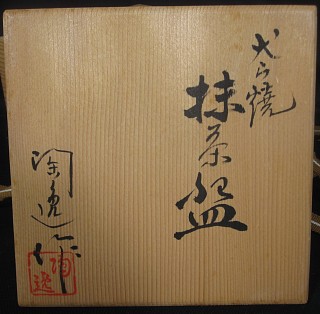 犬山焼
抹茶盌
陶逸作
陶逸